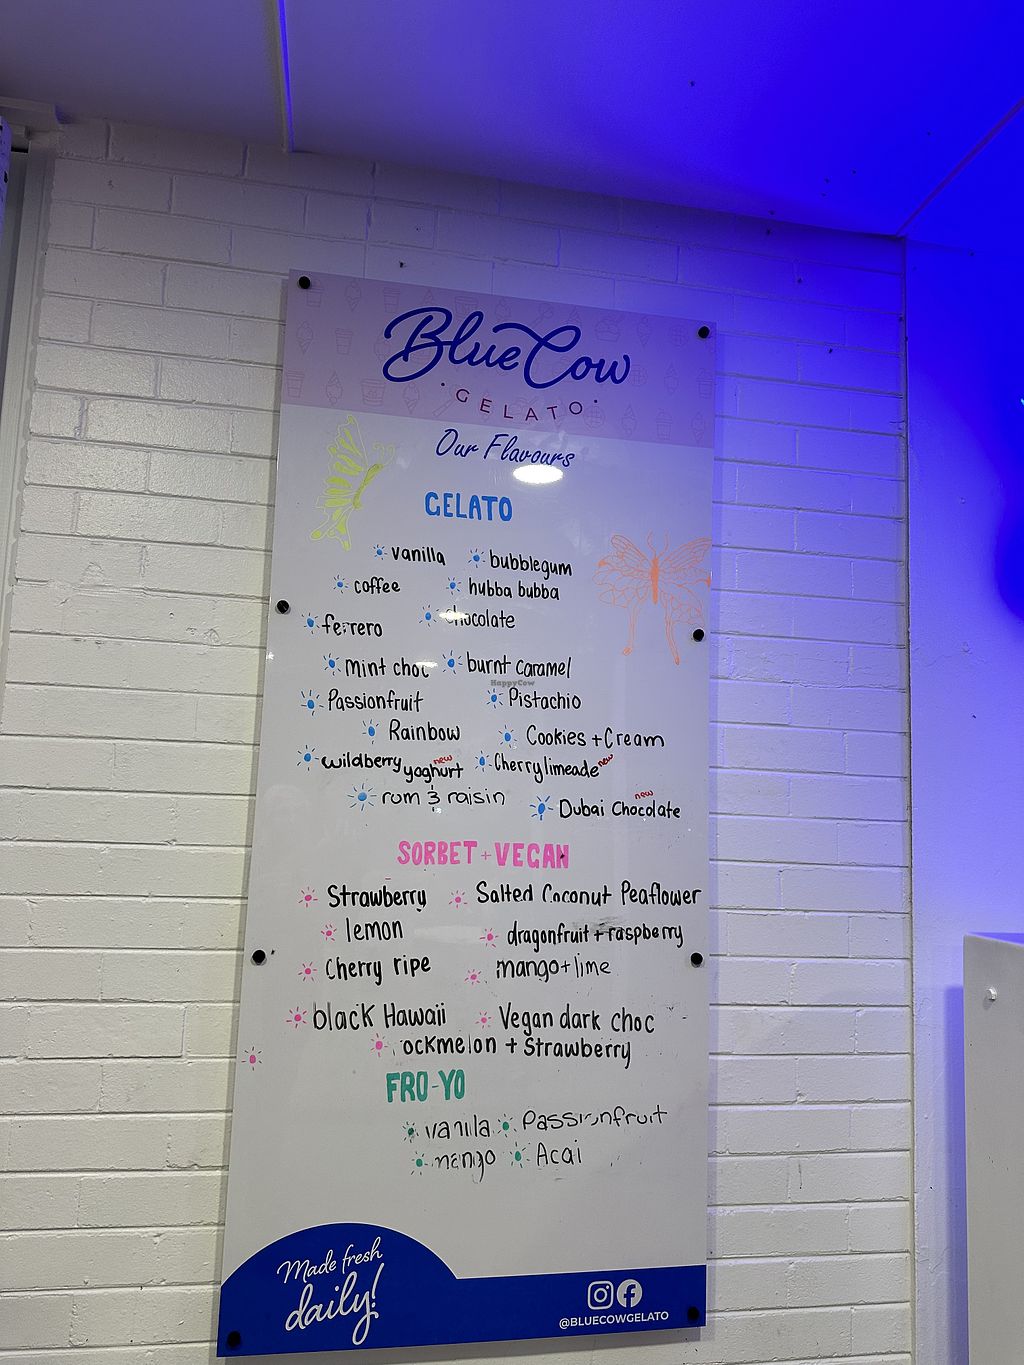 Blue Cow
GELATO
Our Flavours
GELATO
vanilla bubblegum
coffee hubba bubba
ferrero chocolate
mint choc burnt caramel
HappyCow
Passionfruit Pistachio
Rainbow Cookies + Cream
wildberry yoghurt new Cherrylimeade new
rum & raisin Dubai Chocolate new
SORBET + VEGAN
Strawberry Salted Coconut Peaflower
lemon dragonfruit + raspberry
Cherry ripe mango + lime
black Hawaii Vegan dark choc
ockmelon + Strawberry
FRO-YO
vanilla Passionfruit
mango Acai
Made fresh
daily!
@BLUECOWGELATO